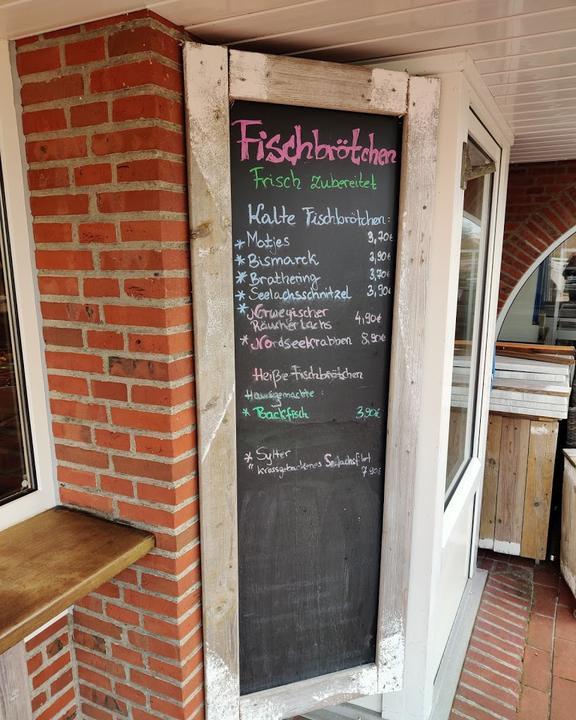 Fischbrötchen
Frisch zubereitet
Kalte Fischbrötchen:
* Matjes 3,70€
* Bismarck 3,90€
* Brathering 3,70€
* Seelachsschnitzel 3,90€
* Norwegischer
Räucherlachs 4,90€
* Nordseekrabben 8,90€
Heiße Fischbrötchen
Hausgemachte:
* Backfisch 3,90€
* Sylter
" krossgebackenes Seelachsfilet
7,90€